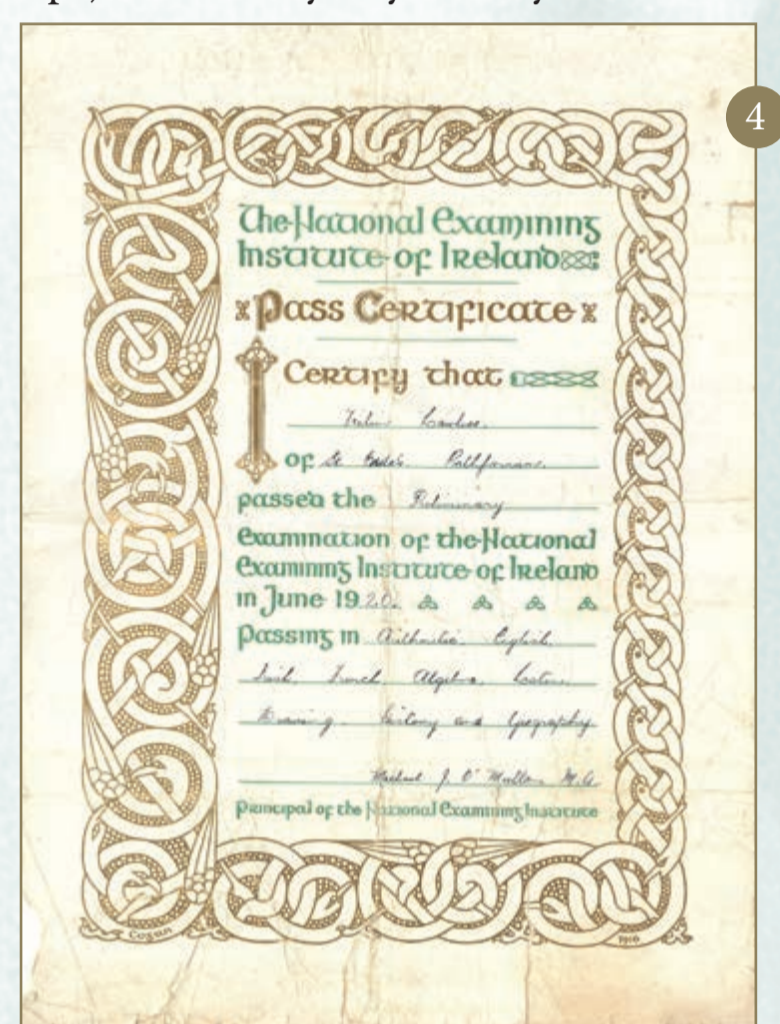 4
The National Examining
Institute of Ireland
Pass Certificate
I Certify that
of
passed the Preliminary
examination of the National
Examining Institute of Ireland
in June 1920.
Passing in Arithmetic, English,
Irish, French, Algebra,
Drawing, History and Geography.
Michael J. O' Mullan M.A.
Principal of the National Examining Institute
Cogan
1916